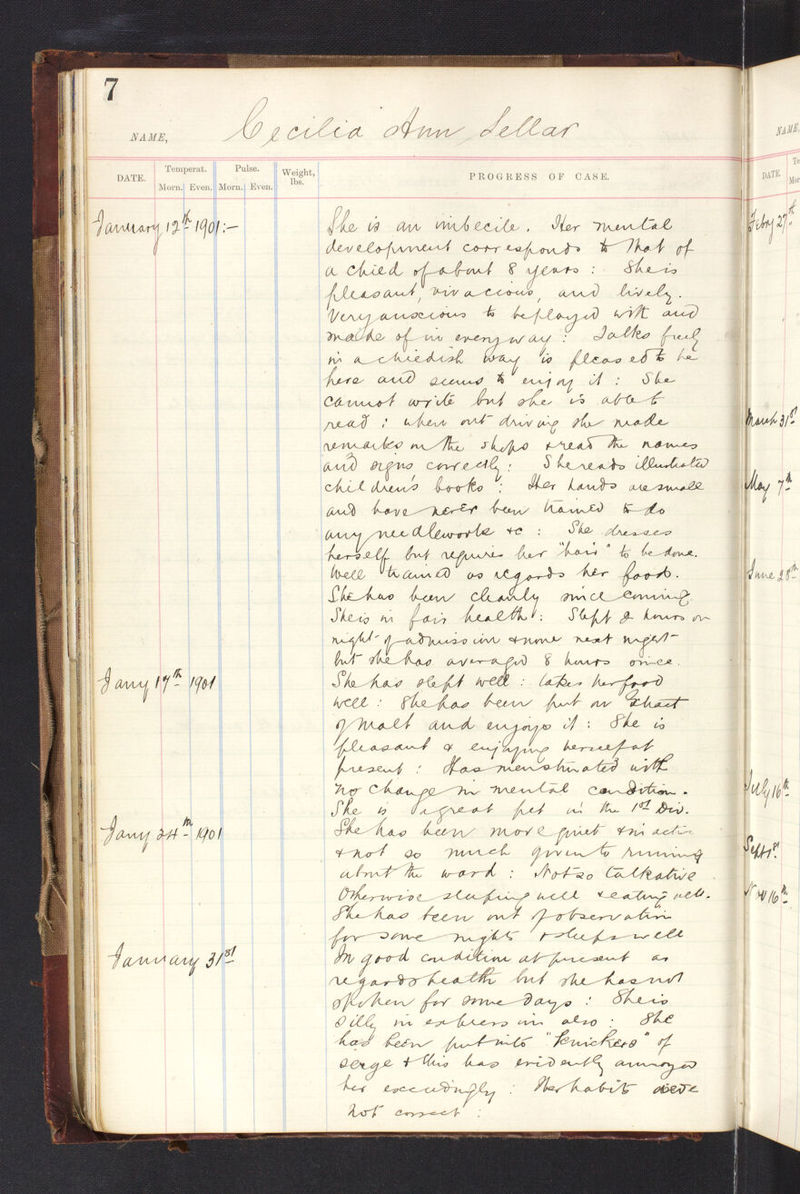 7
NAME, Cecilia Ann Sellar
DATE. Temperat. Pulse. Weight, lbs. PROGRESS OF CASE.
Morn. Even. Morn. Even.
January 12th 1901:- She is an imbecile. Her mental
development corresponds to that of
a child of about 8 years: She is
pleasant, vivacious, and lively.
Very anxious to be played with and
made of in every way: Talks freely
in a childish way is pleased to be
here and seems to enjoy it: She
cannot write but she is able to
read: when out driving she made
remarks on the shops & read the names
and signs correctly: She reads illustrated
children's books: Her hands are small
and have never been trained to do
any needlework &c: She dresses
herself but requires her "hair" to be done.
Well trained as regards her food.
She has been cleanly since coming
She is in fair health: Slept 2 hours on
night of admission & none next night
but she has averaged 8 hours since.
Jany 17th 1901 She has slept well: takes her food
well: She has been put on Extract
of Malt and enjoys it: She is
pleasant & enjoying herself at
present: Has menstruated with
no change in mental condition.
She is a great pet in the 1st Div.
Jany 24th 1901 She has been more quiet & inactive
& not so much given to running
about the ward: Not so talkative
Otherwise sleeping well & eating well.
She has been out of observation
for some nights & sleeps well
January 31st In good condition at present as
regards health but she has not
spoken for some days: She is
silly in expression also: She
has been put into "Knickers" of
serge & this has evidently annoyed
her exceedingly: Her habits were
not correct:
NAME,
DATE.
Mor
Febry 27th
March 31st
May 7th
June 28th
July 16th
Sept 1st
Nov 16th